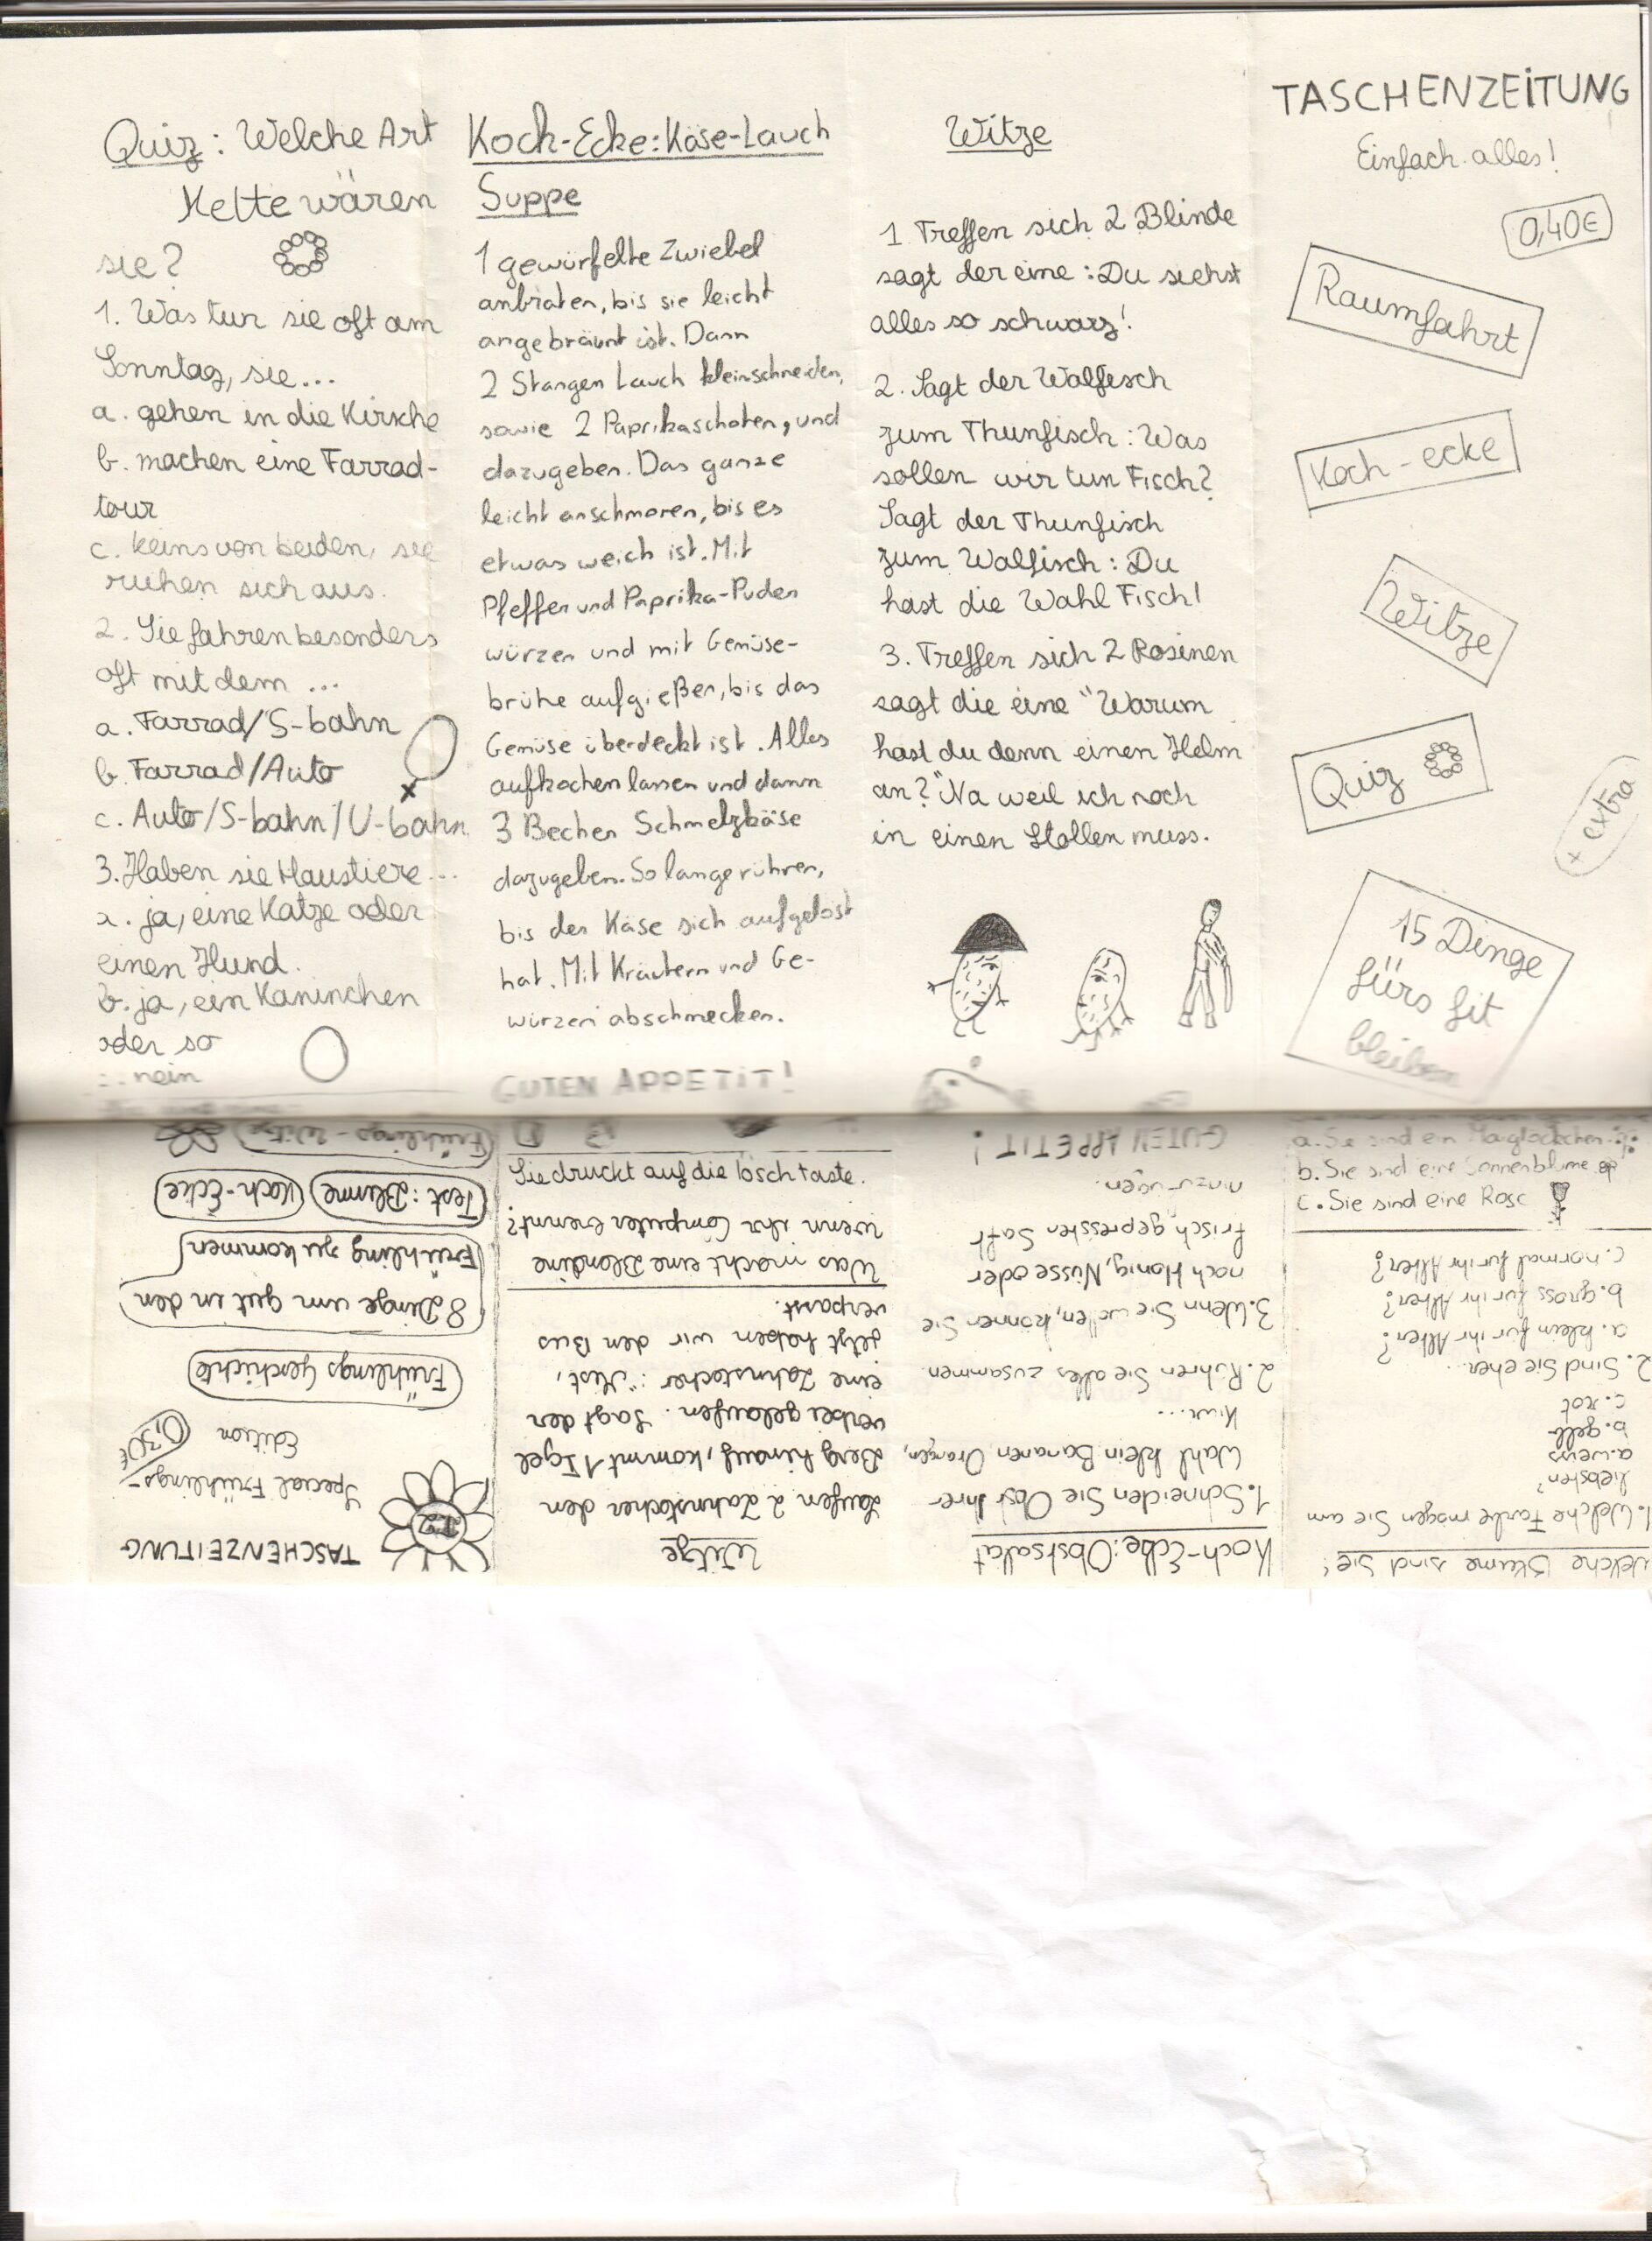 Quiz: Welche Art
Kette wären
sie?
1. Was tun sie oft am
Sonntag, sie...
a. gehen in die Kirsche
b. machen eine Farrad-
tour
c. keins von beiden, sie
ruhen sich aus.
2. Sie fahren besonders
oft mit dem ...
a. Farrad/S-bahn
b. Farrad/Auto
c. Auto/S-bahn/U-bahn
3. Haben sie Haustiere...
a. ja, eine Katze oder
einen Hund.
b. ja, ein Kaninchen
oder so
nein
Koch-Ecke: Käse-Lauch
Suppe
1 gewürfelte Zwiebel
anbraten, bis sie leicht
angebräunt ist. Dann
2 Stangen Lauch kleinschneiden,
sowie 2 Paprikaschoten, und
dazugeben. Das ganze
leicht anschmoren, bis es
etwas weich ist. Mit
Pfeffer und Paprika-Puder
würzen und mit Gemüse-
brühe aufgießen, bis das
Gemüse überdeckt ist. Alles
aufkochen lassen und dann
3 Becher Schmelzkäse
dazugeben. So lange rühren,
bis der Käse sich aufgelöst
hat. Mit Kräutern und Ge-
würzen abschmecken.
GUTEN APPETIT!
Witze
1 Treffen sich 2 Blinde
sagt der eine: Du siehst
alles so schwarz!
2. Sagt der Walfisch
zum Thunfisch: Was
sollen wir tun Fisch?
Sagt der Thunfisch
zum Walfisch: Du
hast die Wahl Fisch!
3. Treffen sich 2 Rosinen
sagt die eine "Warum
hast du denn einen Helm
an?" Na weil ich noch
in einen Stollen muss.
TASCHENZEITUNG
Einfach alles!
0,40€
Raumfahrt
Koch-ecke
Witze
Quiz
+ extra
15 Dinge
fürs fit
bleiben
TASCHENZEITUNG
Special Frühlings-
Edition
0,30€
Frühlings Geschichte
8 Dinge um gut in den
Frühling zu kommen
Test: Blume
Koch-Ecke
Frühlings-Witze
Witze
Laufen 2 Zahnstocher den
Berg hinauf, kommt 1 Igel
vorbei gelaufen. Sagt der
eine Zahnstocher: "Mist,
jetzt haben wir den Bus
verpasst.
Was macht eine Blondine
wenn ihr Computer brennt?
Sie drückt auf die löschtaste.
Koch-Ecke: Obstsalat
1. Schneiden Sie Obst ihrer
Wahl klein Bananen Orangen,
Kiwi...
2. Rühren Sie alles zusammen
3. Wenn Sie wollen, können Sie
noch Honig, Nüsse oder
frisch gepressten Saft
hinzufügen.
GUTEN APPETIT!
Welche Blume sind Sie?
1. Welche Farbe mögen Sie am
liebsten?
a. weiss
b. gelb
c. rot
2. Sind Sie eher...
a. klein für ihr Alter?
b. gross für ihr Alter?
c. normal für ihr Alter?
a. Sie sind ein Maiglöckchen
b. Sie sind eine Sonnenblume
c. Sie sind eine Rose